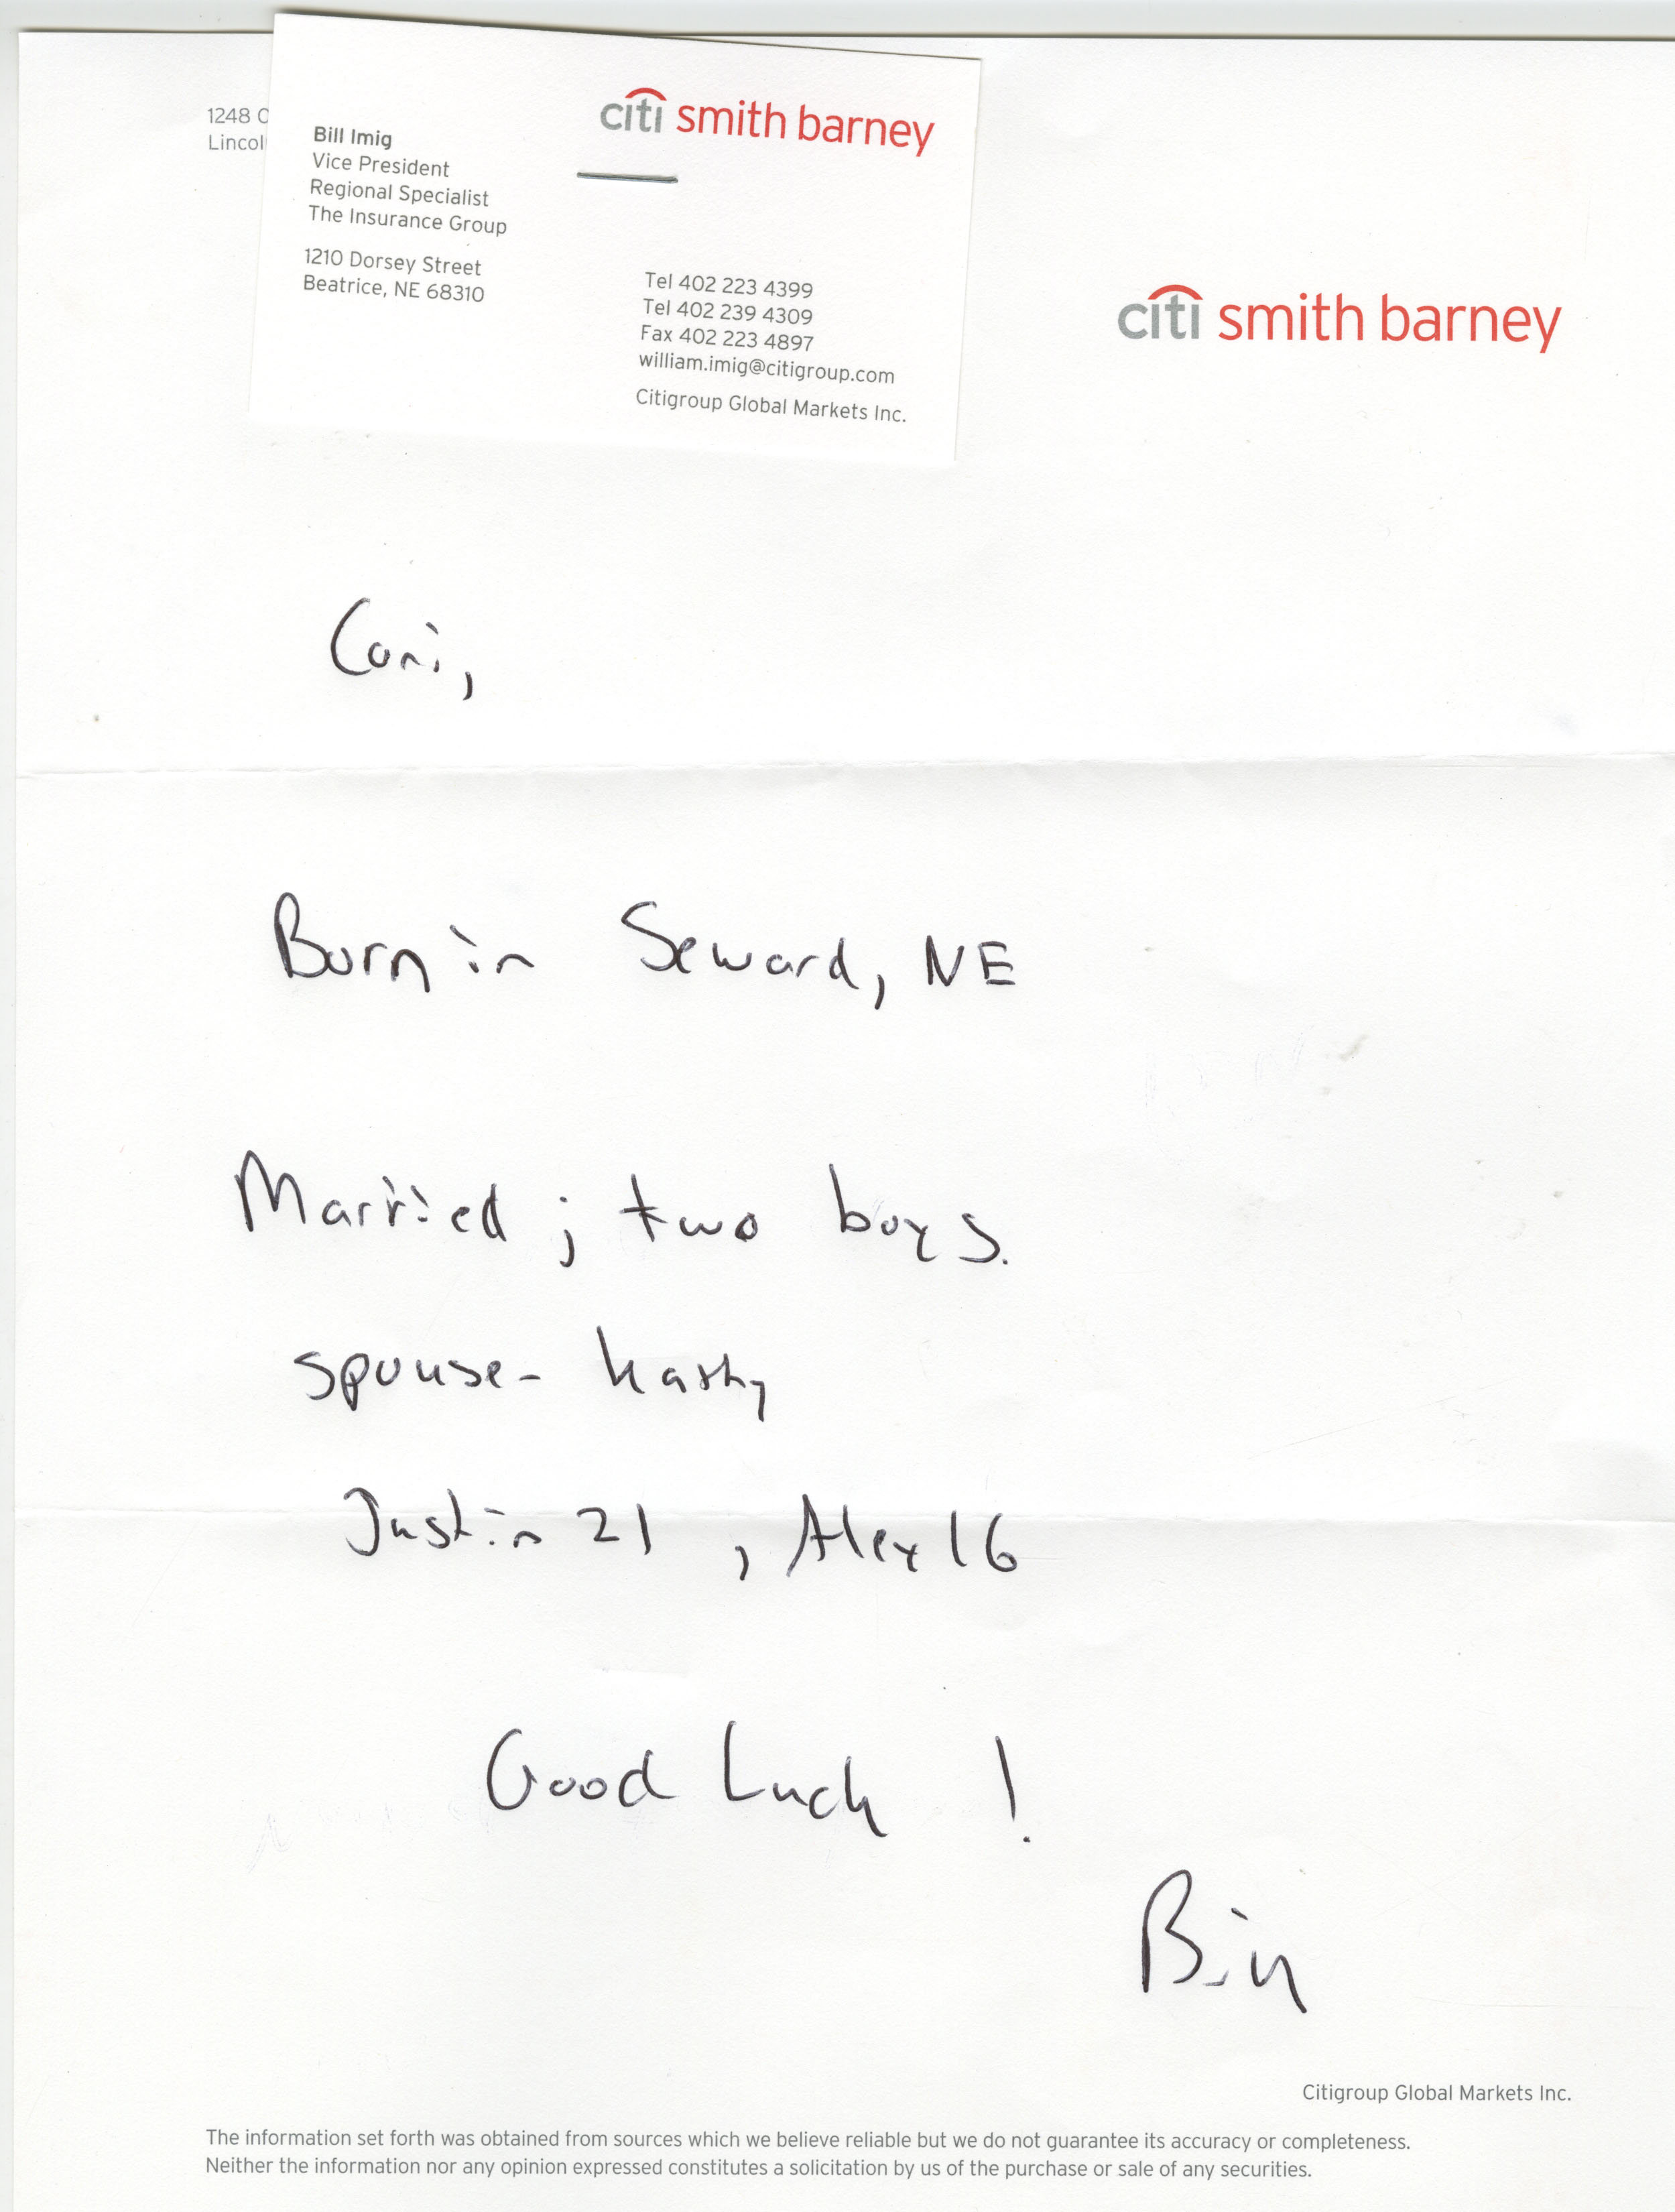 1248 O
Lincol
citi smith barney
Bill Imig
Vice President
Regional Specialist
The Insurance Group
1210 Dorsey Street
Beatrice, NE 68310
Tel 402 223 4399
Tel 402 239 4309
Fax 402 223 4897
william.imig@citigroup.com
Citigroup Global Markets Inc.
citi smith barney
Cori,
Born in Seward, NE
Married; two boys.
spouse- Kathy
Justin 21, Alex 16
Good Luck!
Bill
Citigroup Global Markets Inc.
The information set forth was obtained from sources which we believe reliable but we do not guarantee its accuracy or completeness.
Neither the information nor any opinion expressed constitutes a solicitation by us of the purchase or sale of any securities.